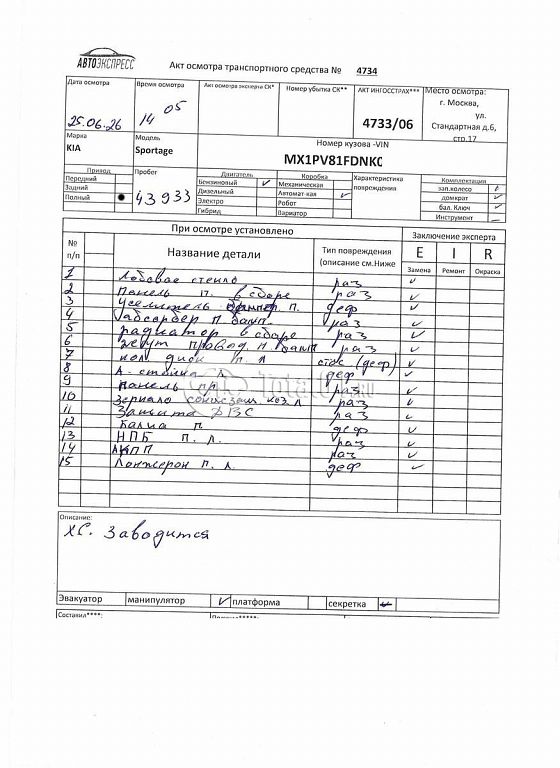 АВТОЭКСПРЕСС
Акт осмотра транспортного средства № 4734
Дата осмотра
25.06.26
Время осмотра
14 05
Акт осмотра эксперта СК*
Номер убытка СК**
АКТ ИНГОССТРАХ***
4733/06
Место осмотра:
г. Москва,
ул.
Стандартная д.6,
стр.17
Марка
KIA
Модель
Sportage
Номер кузова -VIN
MX1PV81FDNK
Привод
Передний
Задний
Полный
Пробег
43933
Двигатель
Бензиновый ✓
Дизельный
Электро
Гибрид
Коробка
Механическая
Автомат-кая ✓
Робот
Вариатор
Характеристика
повреждения
Комплектация
зап.колесо
домкрат ✓
бал. Ключ ✓
Инструмент –
При осмотре установлено
Заключение эксперта
№
п/п
Название детали
Тип повреждения
(описание см.Ниже
E I R
Замена Ремонт Окраска
1 Лобовое стекло раз ✓
2 Панель п. в сборе раз ✓
3 Усилитель п. деф ✓
4 абсорбер п бамп. раз ✓
5 радиатор в сборе раз ✓
6 жгут провод п бамп раз ✓
7 кол диск п л (деф) ✓
8 А-стойка л деф ✓
9 Панель пр. раз ✓
10 Зеркало л раз ✓
11 Защита ДВС раз ✓
12 Балка п деф ✓
13 НПБ п. л. раз ✓
14 АКПП раз ✓
15 Лонжерон п. л. деф ✓
Описание:
ХС. Заводится
Эвакуатор манипулятор ✓ платформа секретка
Составил****: